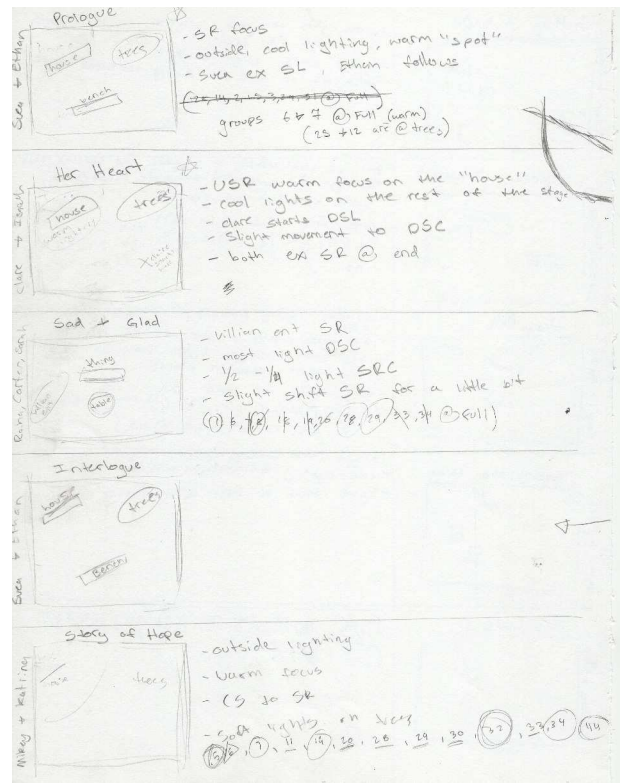 Prologue
Sven + Ethan
house
trees
bench
- SR focus
- outside, cool lighting, warm "spot"
- Sven ex SL, Ethan follows
groups 6 & 7 @ Full (warm)
(25 + 12 are @ trees)
Her Heart
house
trees
- USR warm focus on the "house"
- cool lights on the rest of the stage
- clare starts DSL
- Slight movement to DSC
- both ex SR @ end
Sad + Glad
thing
table
- villian ent SR
- most light DSC
- 1/2 - 1/4 light SRC
- Slight shift SR for a little bit
28, 29, 33, 34 @ Full)
Interlogue
Sven + Ethan
house
trees
Bench
Story of Hope
trees
- outside lighting
- warm focus
- CS to SR
- soft lights on trees
7, 11, 14, 20, 28, 29, 30, 32, 33, 34, 44